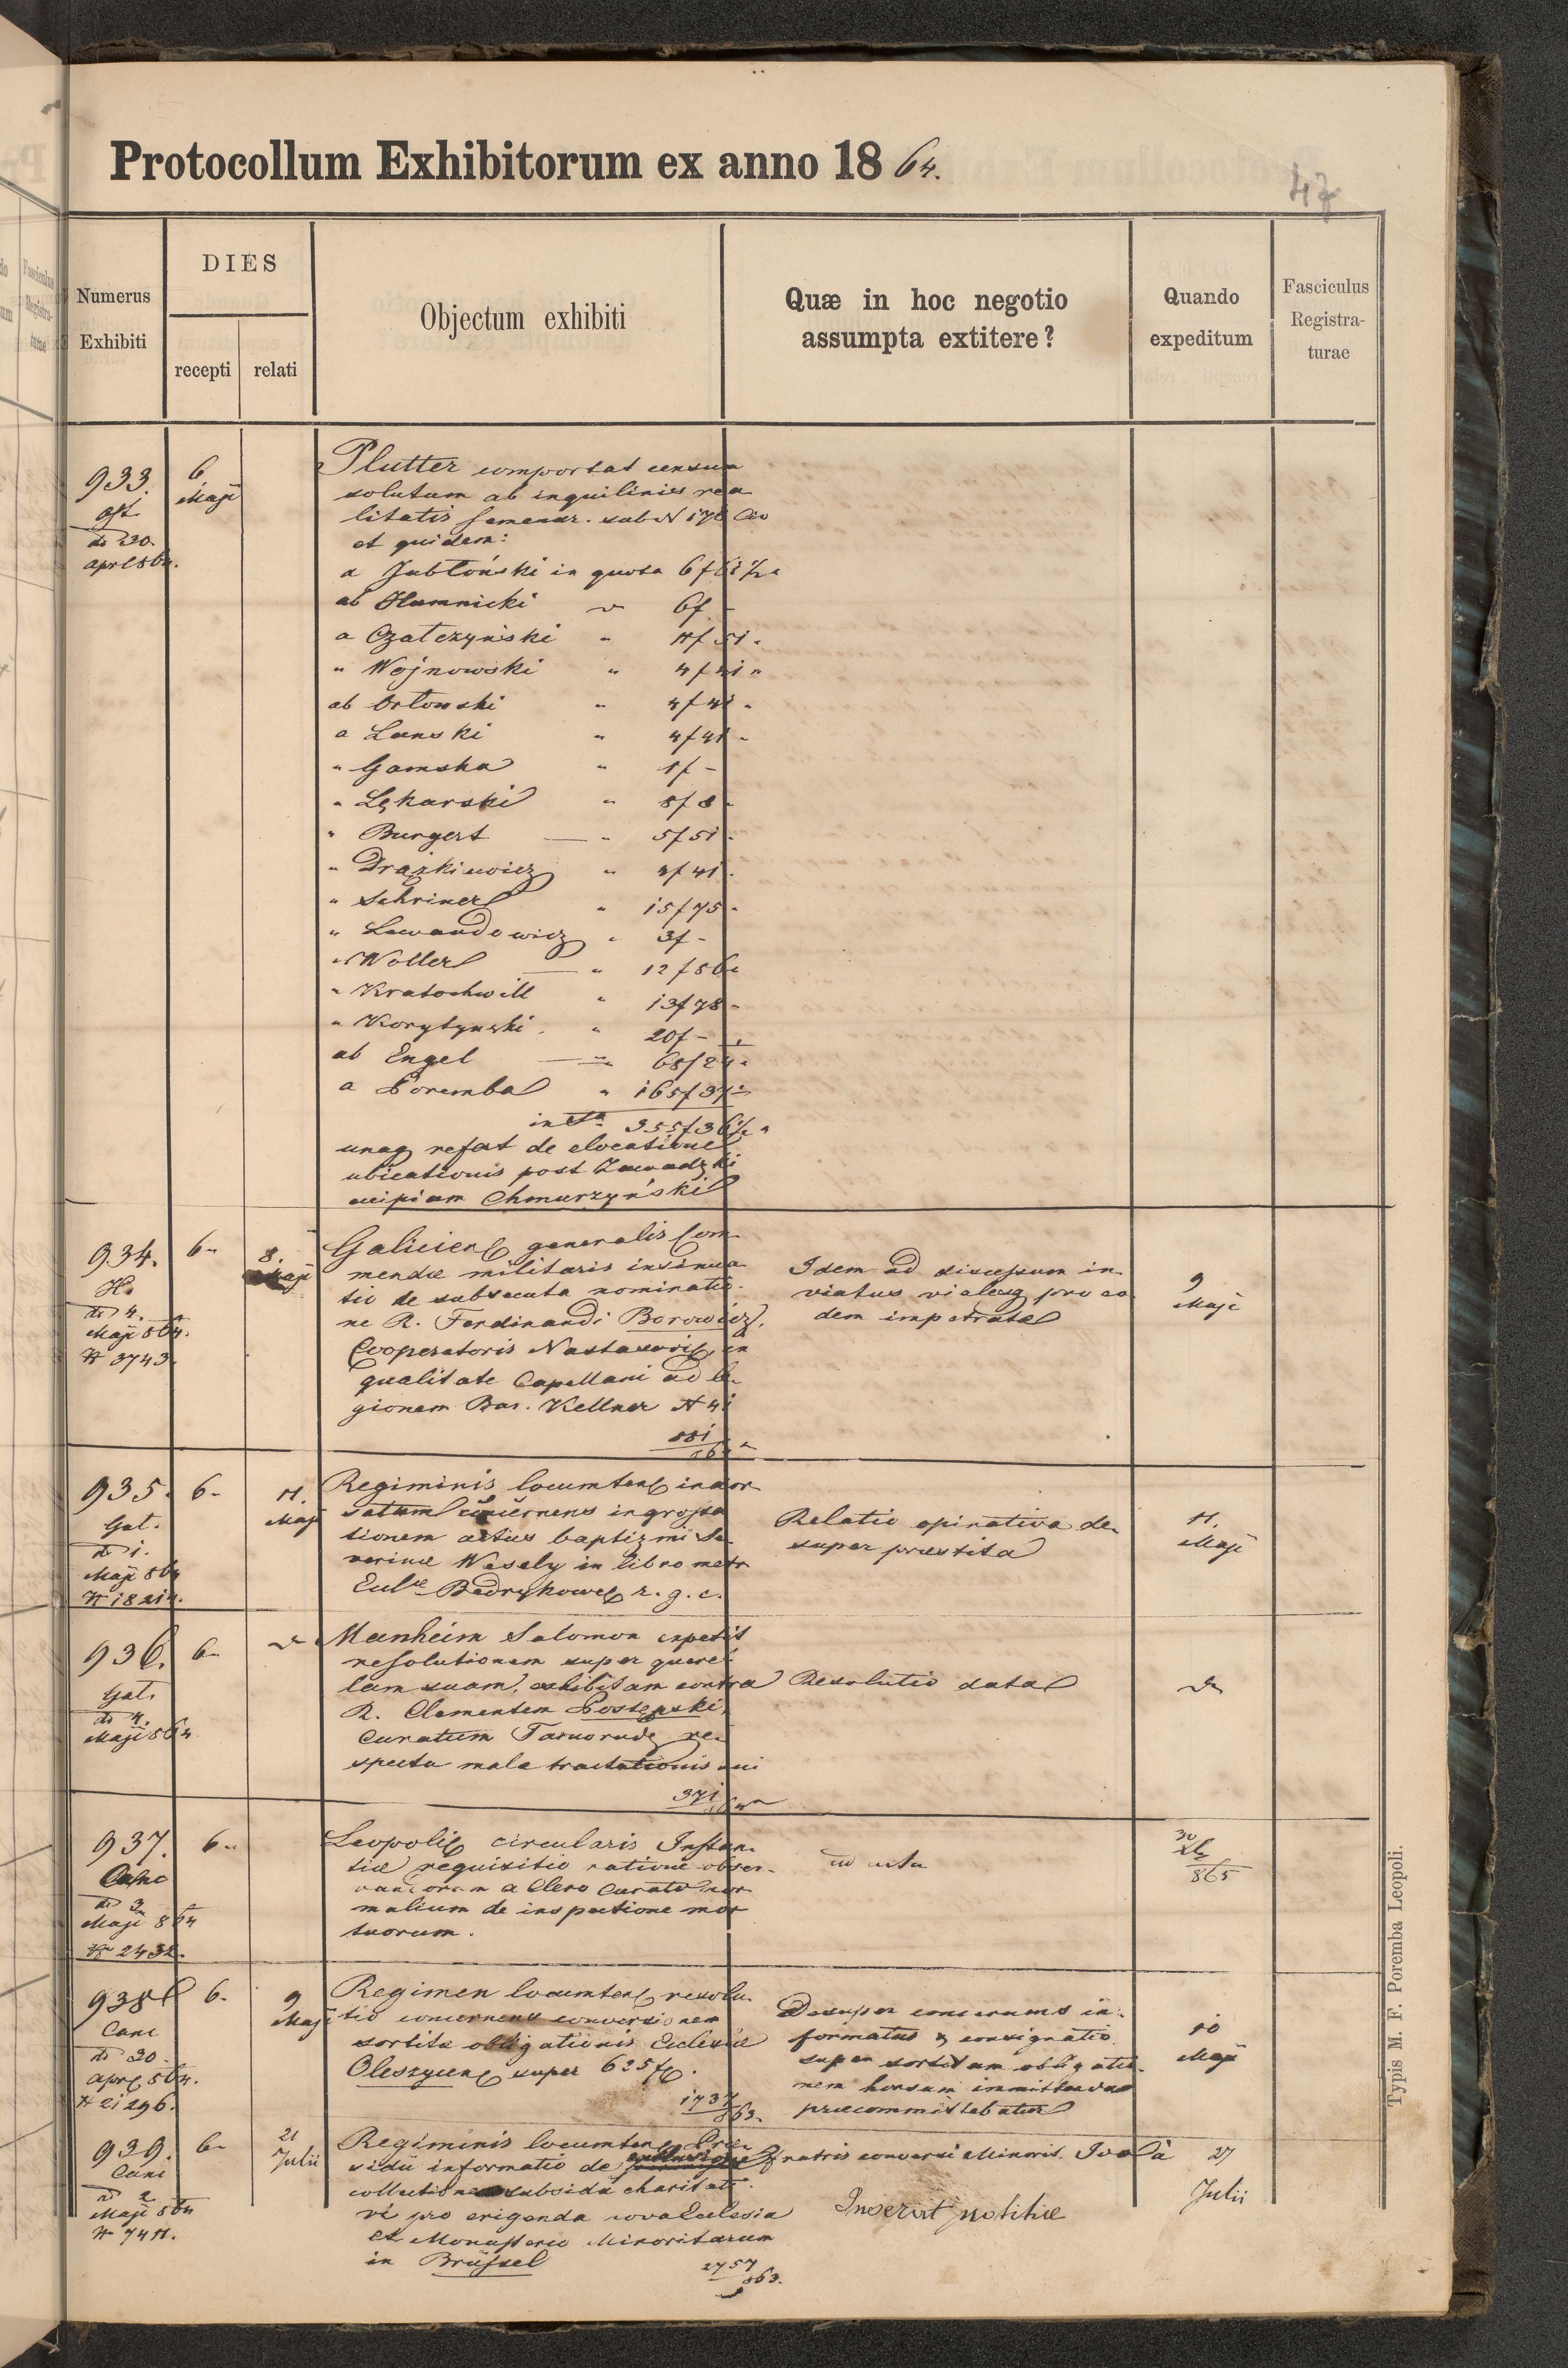 Protocollum Exhibitorum ex anno 1864.
47
Numerus Exhibiti
DIES
recepti
relati
Objectum exhibiti
Quæ in hoc negotio assumpta extitere?
Quando expeditum
Fasciculus Registra-turae
933.
6 Maji
Plutter comportat censum
solutum ab inquilinis rea
litatis
et quidem:
a Jabłoński in quota 6f
ab Humnicki 6f -
a Czałczyński
" Wojnowski " 4f 41 "
ab Orłowski " 4f 41 -
a Lanski " 4f 41 -
" Gamska " 1f -
" Lękarski " 8f 8 -
" Burgert " 5f 51 -
" Drążkiewicz " 4f 41 -
" Schriner " 15f 75 -
" Lewandowicz " 3f -
" Woller " 12f 86
" Kratochwill " 13f 78 -
" Korytyński " 20f -
ab Engel " 68f 24 -
a Poremba " 165f 37
355f 36½
refert de elocatione
ubicationis post Zawadzki
Chmurzyński
934.
6
8. Maji
de 4.
Maji 864.
N 3743.
Galicien generalis Com-
mendæ militaris insinua
tio de subsecuta nominatio-
ne R. Ferdinandi Borowicz,
Cooperatoris Nastasovien, in
qualitate Capellani ad le-
gionem Bar. Kellner N 41
Idem ad discessum in-
viatus pro eo
dem impetratæ
9 Maji
935.
6-
11. Maji
Gal.
de 1.
Maji 864
Regiminis locumten indor-
satum concernens ingrossa
tionem actus baptizmi Se-
verinæ Wesely in libro metr
r. g. c.
Relatio opinativa de-
super præstita
11. Maji
936.
6-
Gal.
de 4.
Maji 864
Manheim Salomon expetit
resolutionem super quere-
lam suam, exhibitam contra
R. Clementem Postępski,
Curatum Tarnorudę re-
spectu male tractationis sui
371
Resolutio data
937.
6-
de 3
Maji 864
N 2432.
Leopolien circularis Instan-
tiæ requisitio ratione obser-
vandorum a Clero Curato nor
malium de inspectione mor
tuorum.
ad acta
30
865
938
6.
9 Maji
Canc
de 30
apr 864.
N 21296.
Regimen locumten resolu-
tio concernens conversionem
sortitæ obligationis Ecclesiæ
Oleszycen super 625 f.
1737
863.
Desuper
formatus & consignatio
super sortitam obligatio-
nem
præcommittebatur
10 Maji
939.
6-
21 Julii
Maji 864
Regiminis locumten Præ-
sidii informatio de
collectione subsidii charitati-
vi pro erigenda nova Ecclesia
et Monasterio Minoritarum
in Brüssel
2757
863.
fratris conversi Minorit.
Inservit notitiæ
27 Julii
Typis M. F. Poremba Leopoli.